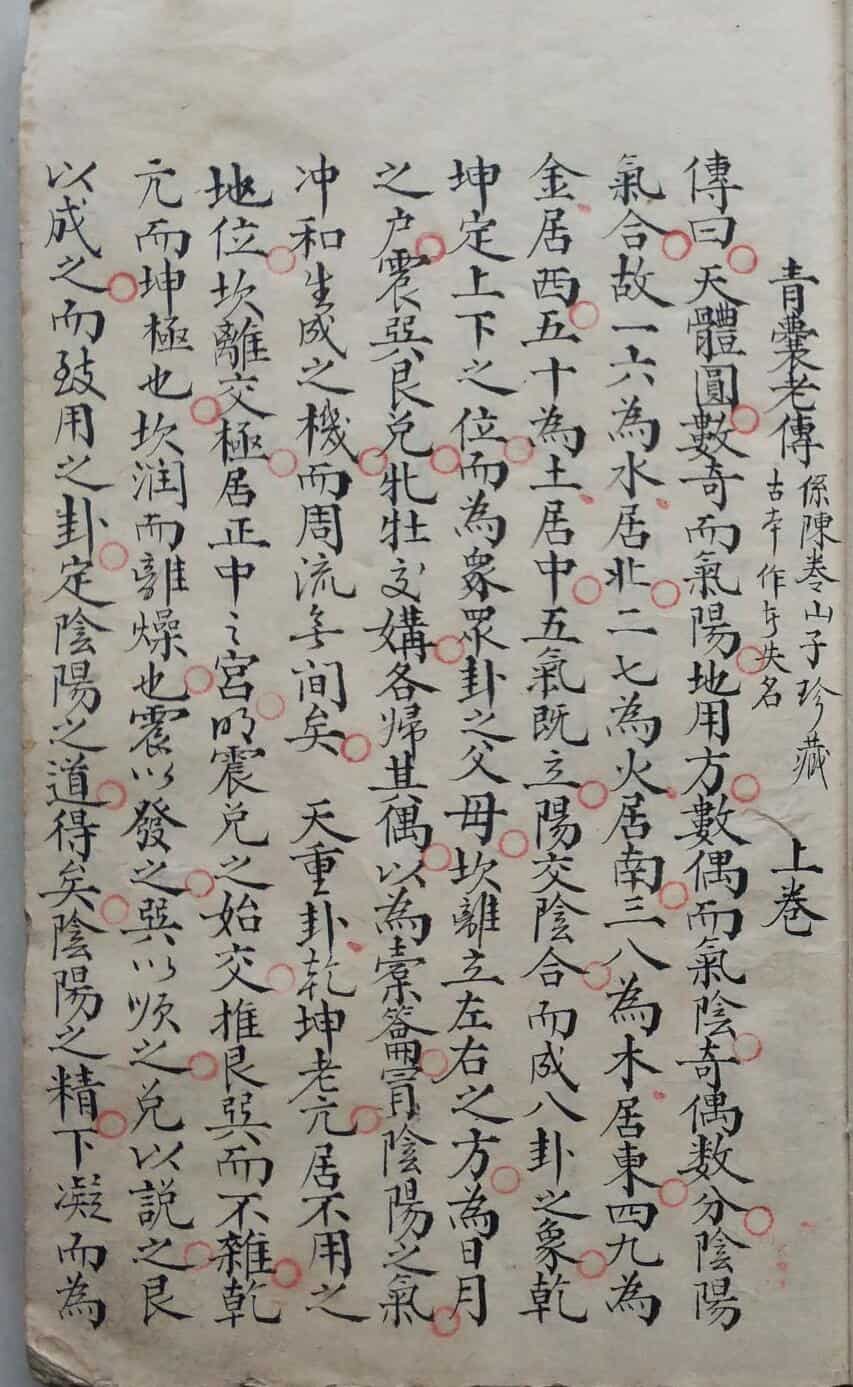 青囊老傳 係陳養山子珍藏 古本作與失名 上卷
傳曰天體圓數奇而氣陽地用方數偶而氣陰奇偶数分陰陽
氣合故一六為水居北二七為火居南三八為木居東四九為
金居西五十為土居中五氣既立陽交陰合而成八卦之象乾
坤定上下之位而為象眾卦之父母坎離立左右之方為日月
之户震巽艮兌牝牡交媾各归其偶以為橐籥罥陰陽之氣
冲和生成之機而周流無间矣 天重卦乾坤老亢居不用之
地位坎離交極居正中之宮明震兌之始交推艮巽而不雜乾
亢而坤極也坎潤而離燥也震以發之巽以順之兌以説之艮
以成之而致用之卦定陰陽之道得矣陰陽之精下凝而為